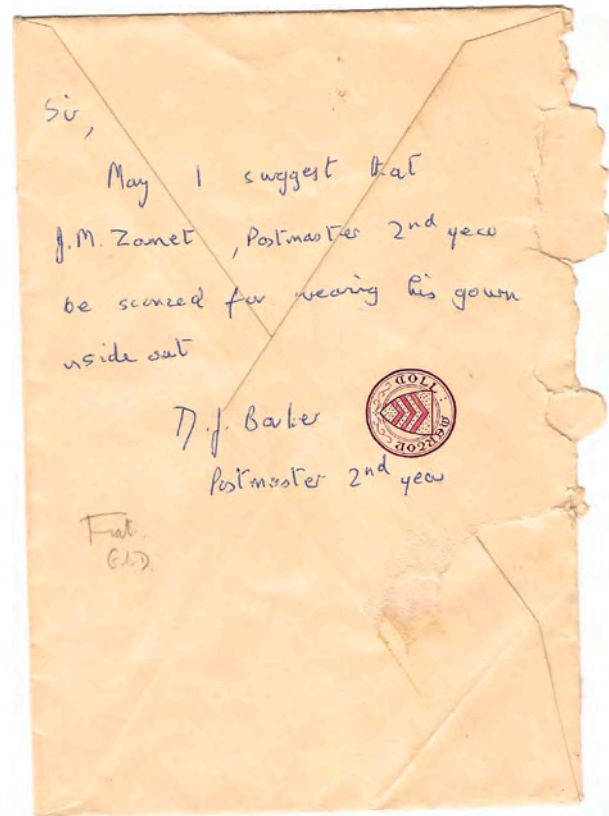 Sir,
May I suggest that
J.M. Zamet, Postmaster 2nd year
be sconced for wearing his gown
inside out
D.J. Barker
MERTON COLL:
Postmaster 2nd year
Fiat.
G.L.D.